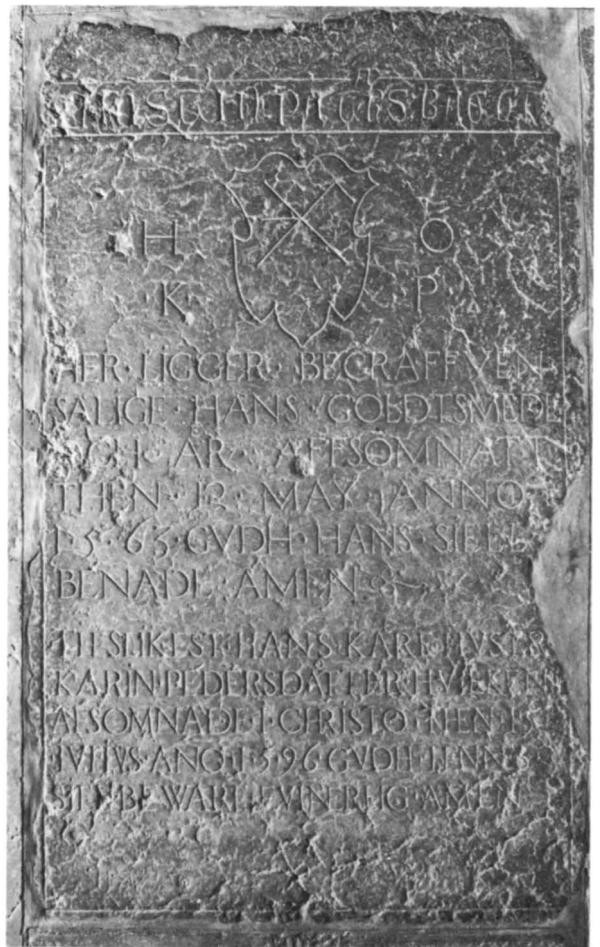 H O
K P
HER · LIGGER · BEGRAFFVEN
SALIGE · HANS · GOLDTSMEDH
OCH · ÄR · AFFSOMNATT
THEN · 12 · MAY · ANNO
1565 · GVDH · HANS SIEEL
BENADE · AMEN
TILSLIKEST · HANS KÄRE HVSTRV
KARIN · PEDERSDÅTTER HVILKEN
AFSOMNADE I CHRISTO THEN
IVLIVS · ANO · 1596 GVDH HENNES
SIEL BEWARE EVINERLIG AMEN